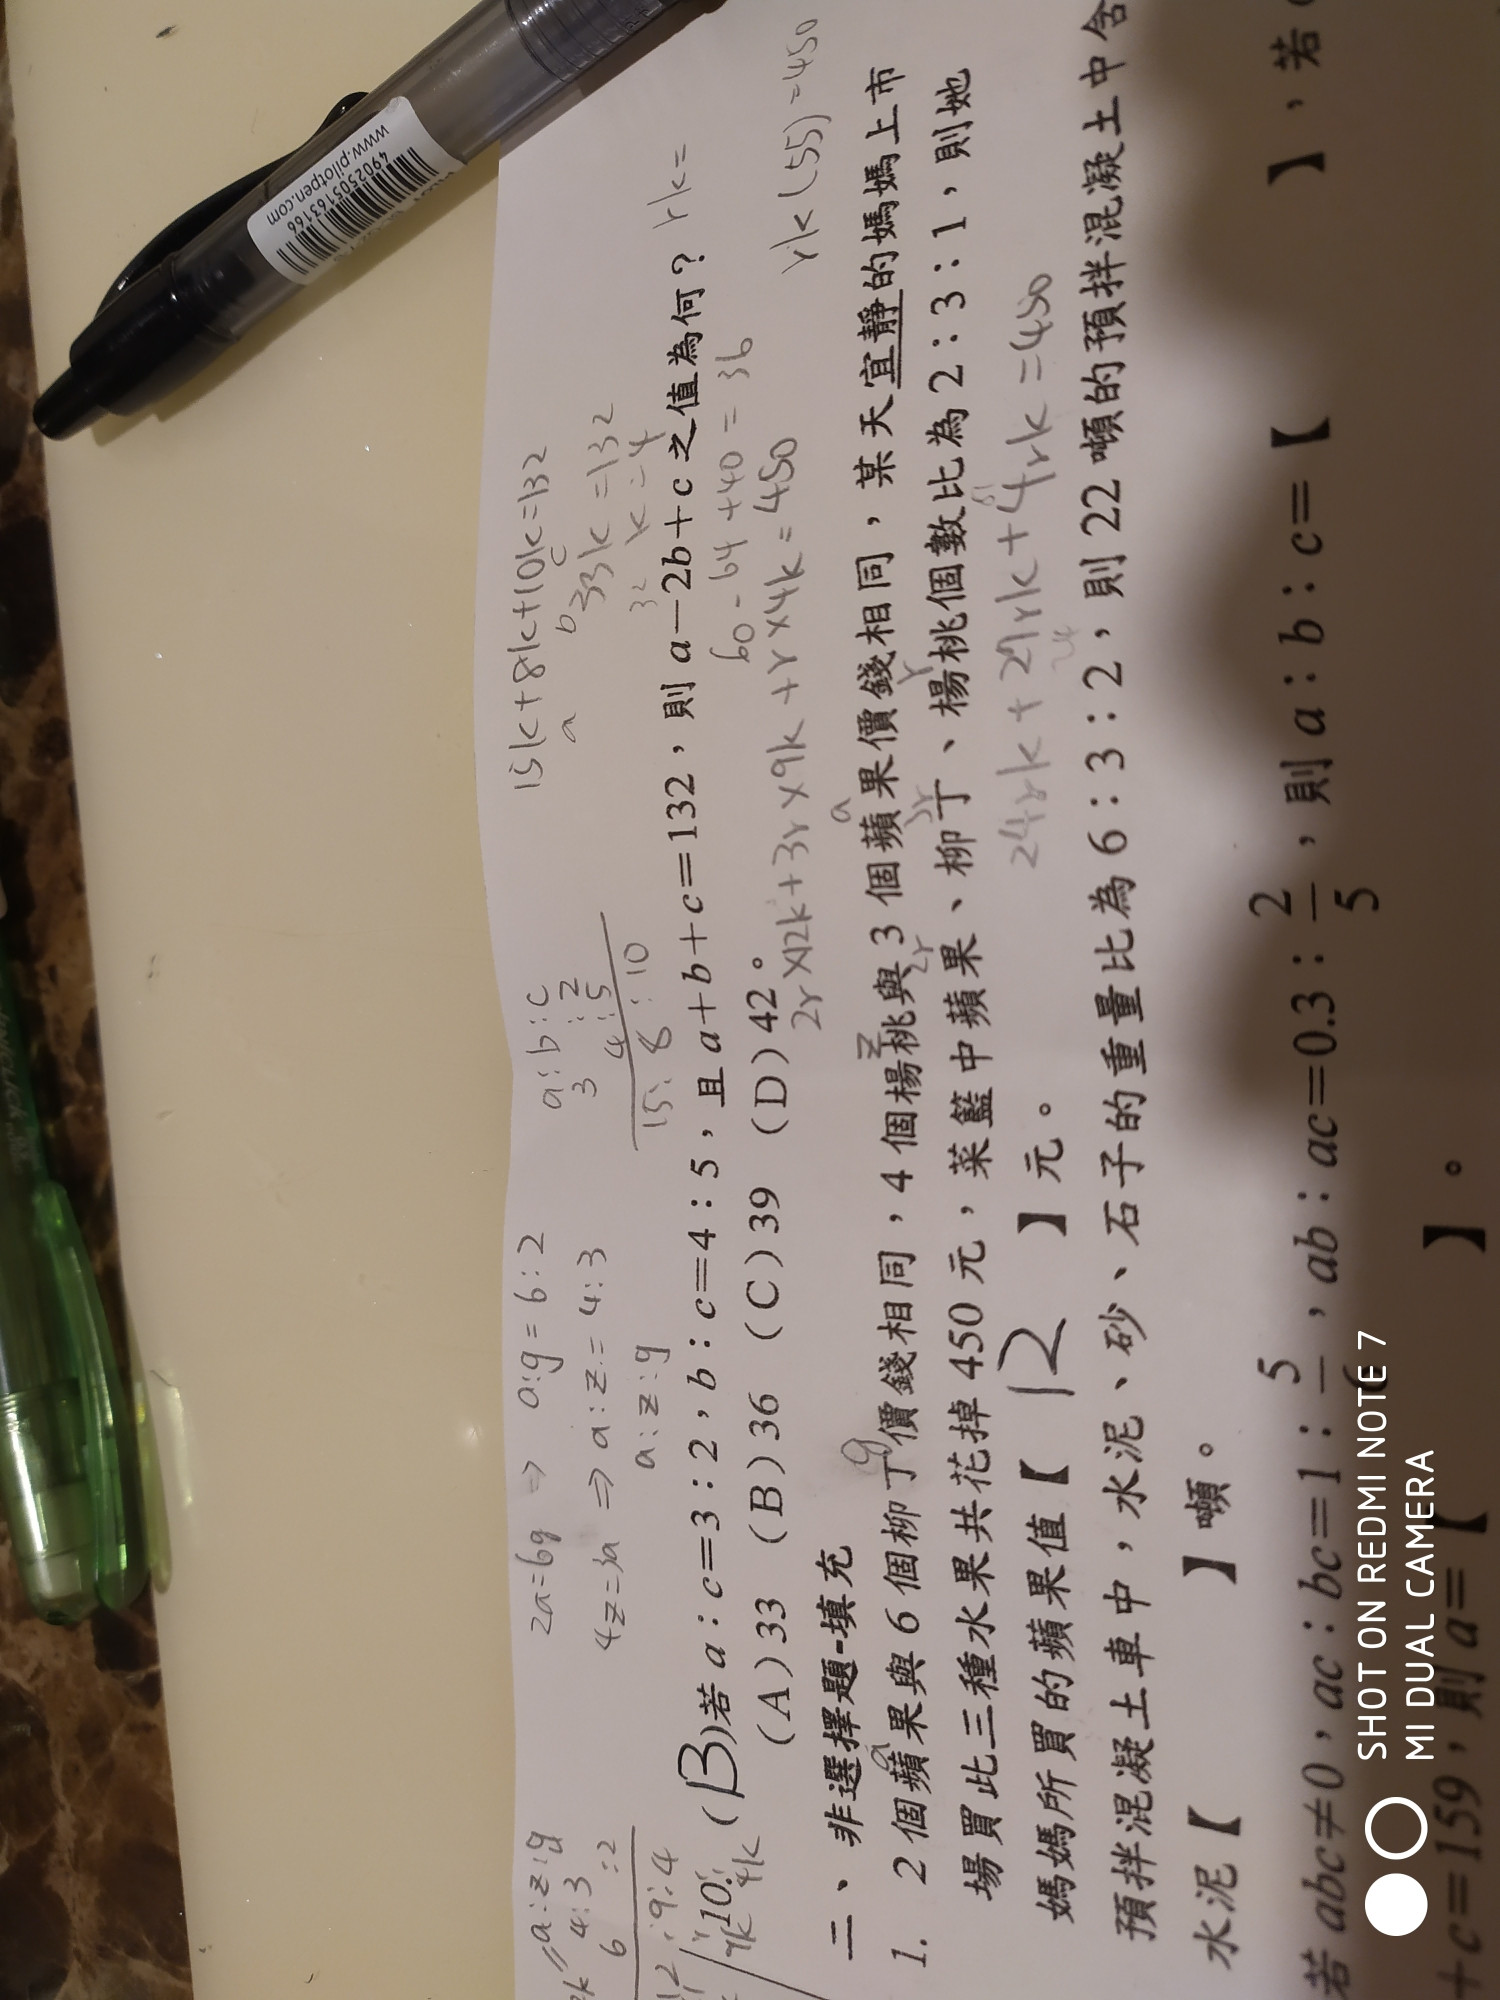 2a=6y ⇒ a:y=6:2
4z=3a ⇒ a:z=4:3
a:z:y
a:z:y
4:3
6 :2
12:9:4
a:b:c
3 :2
4:5
15:8:10
15k+8k+10k=132
a b c
33k=132
k=4
32
(B)若 a:c=3:2,b:c=4:5,且 a+b+c=132,則 a-2b+c 之值為何? rk=
60-64+40=36
(A)33 (B)36 (C)39 (D)42。
2r×12k+3r×9k+r×4k=450
rk(55)=450
二、非選擇題-填充
1. 2 個蘋果與 6 個柳丁價錢相同,4 個楊桃與 3 個蘋果價錢相同,某天宜靜的媽媽上市
場買此三種水果共花掉 450 元,菜籃中蘋果、柳丁、楊桃個數比為 2:3:1,則她
媽媽所買的蘋果值【 12 】元。
24rk+27rk+4rk=450
預拌混凝土車中,水泥、砂、石子的重量比為 6:3:2,則 22 噸的預拌混凝土中含
水泥【 】噸。
若 abc≠0,ac:bc=1:5/6,ab:ac=0.3:2/5,則 a:b:c=【 】,若
+c=159,則 a=【 】。
www.pilotpen.com
4902505163166
SHOT ON REDMI NOTE 7
MI DUAL CAMERA